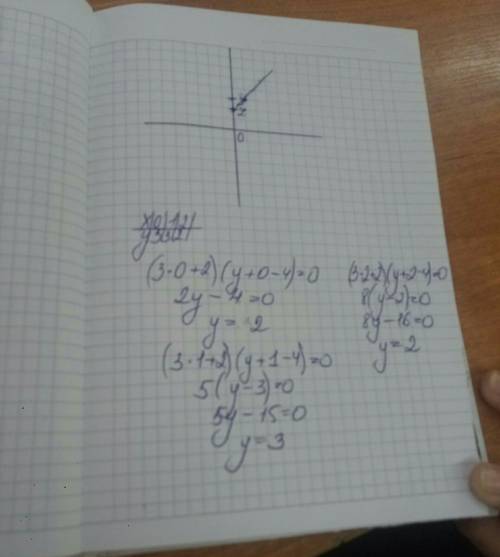 0
(3·0+2)(y+0-4)=0
2y-4=0
y=2
(3·1+2)(y+1-4)=0
5(y-3)=0
5y-15=0
y=3
(3·2+2)(y+2-4)=0
8(y-2)=0
8y-16=0
y=2